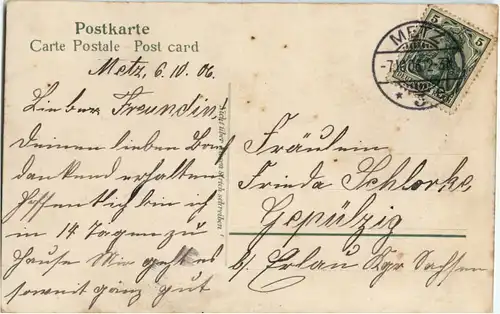 Postkarte
Carte Postale Post card
Metz, 6.10.06.
Lieber Freundin
Deinen lieben Brief
dankend erhalten
hoffentlich bin ich
in 14 Tagen zu
Hause Mir geht es
soweit ganz gut
Fräulein
Frieda Schlorke
Gepülzig
b/ Erlau Kgr Sachsen
METZ
5
5